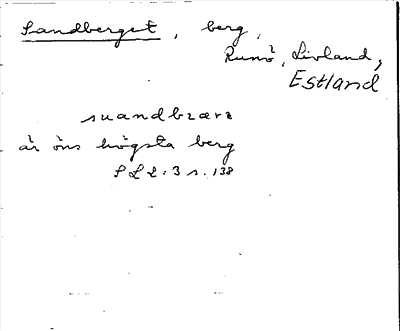 Sandberget, berg,
Runö, Livland,
Estland
suandbærɛ
är öns högsta berg
SLL: 3 s. 138